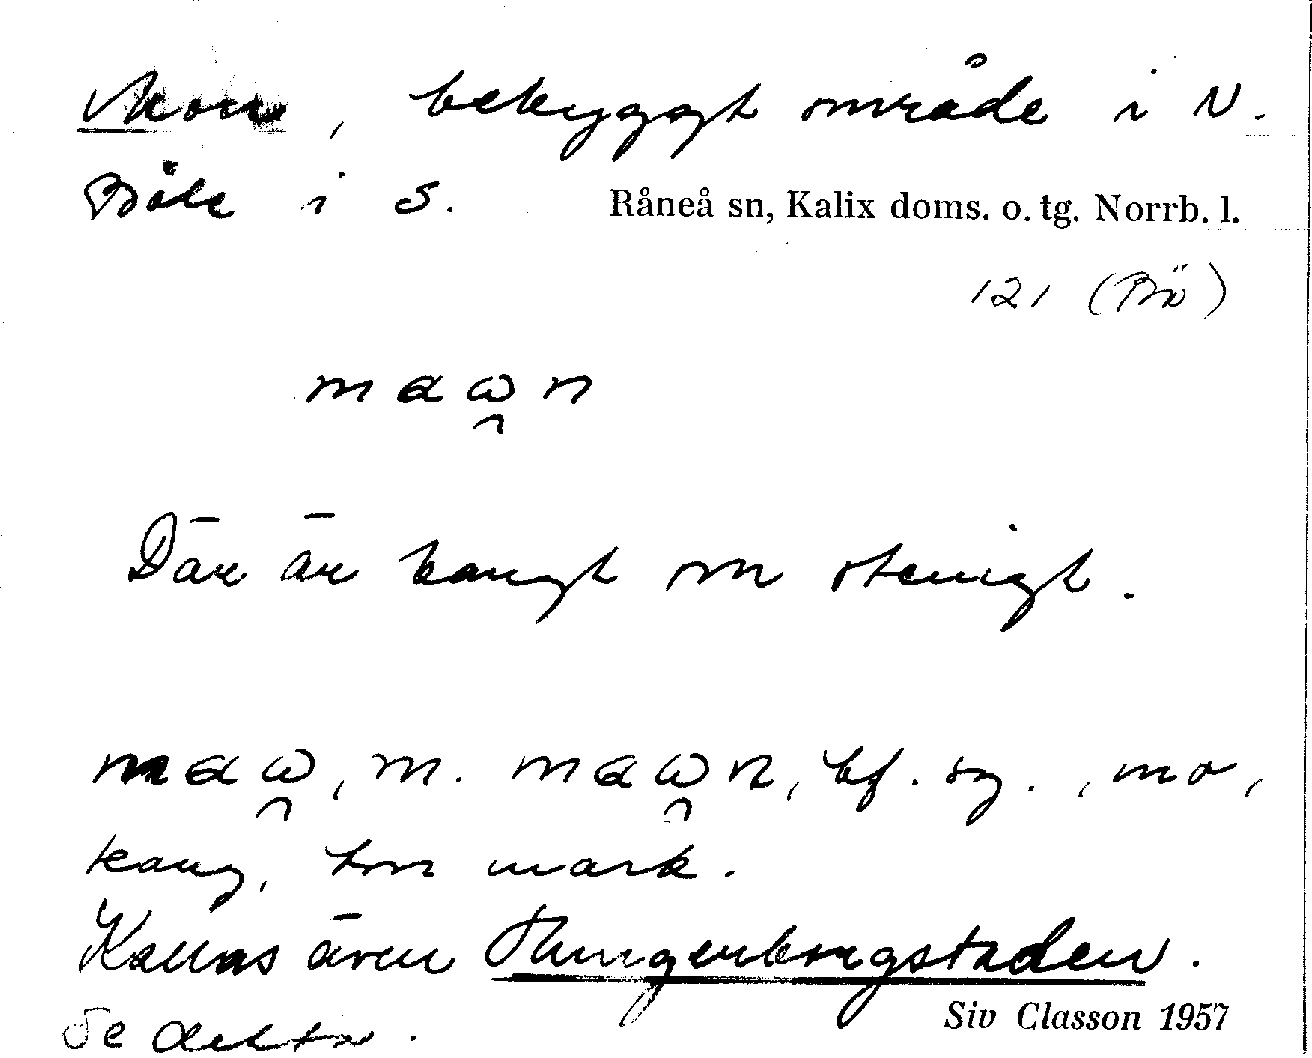 Mon, bebyggt område i N.
Böle i S. Råneå sn, Kalix doms. o. tg. Norrb. l.
121 (Bö)
mɑω̯n
Där är kangt stenigt.
mɑω̯, m. mɑω̯n, bf. sg., mo,
kang, torr mark.
Kallas även Hungerborgstaden.
Siv Classon 1957
Se detta.